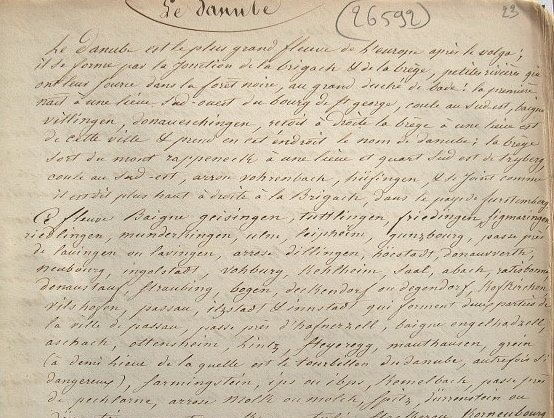 Le Danube
(26592)
23
Le Danube est le plus grand fleuve de l'europe après le volga ;
il se forme par la jonction de la brigach & de la brège, petites rivières qui
ont leur source dans la forêt noire, au grand duché de bade : la première
nait à une lieue sud-ouest du bourg de st george, coule au sud est, baigne
villingen, donaueschingen, reçoit à droite la brège à une lieue est
de cette ville & prend en cet endroit le nom de danube ; la brège
sort du mont rappeneck à une lieue et quart sud est de tryberg,
coule au sud-est, arrose vohrenbach, hüfingen, & se joint comme
il est dit plus haut à droite à la Brigach, dans le pays de furstemberg.
Ce fleuve Baigne geisingen, tuttlingen, friedingen, sigmaringen
riedlingen, munderkingen, ulm, leipheim, gunzbourg, passe près
de lauingen ou lavingen, arrose dillingen, hochstadt, donauverth,
neubourg, ingolstadt, vohburg, Kehlheim, saal, abach, ratisbonne
donaustauf, straubing, bogen, deckendorf ou degendorf, hofkirchen
vilshofen, passau, ilzstadt & innstadt qui forment deux parties de
la ville de passau, passe près d'hafnerzell, baigne engelhadzell,
aschach, ottensheim, Lintz, Steyeregg, mauthausen, grein
(à demi lieue de la quelle est le tourbillon du danube, autrefois si
dangereux), sarmingstein, ips ou ibps, Kemelbach, passe près
de pechlarne, arrose molk ou mölck, spitz, durrenstein ou
Korneubourg